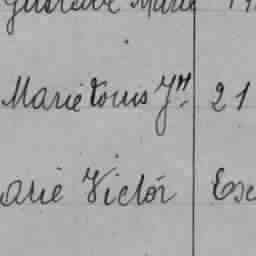 Gustave Marie
Marie Louis Jn 21
arie Victor Esc